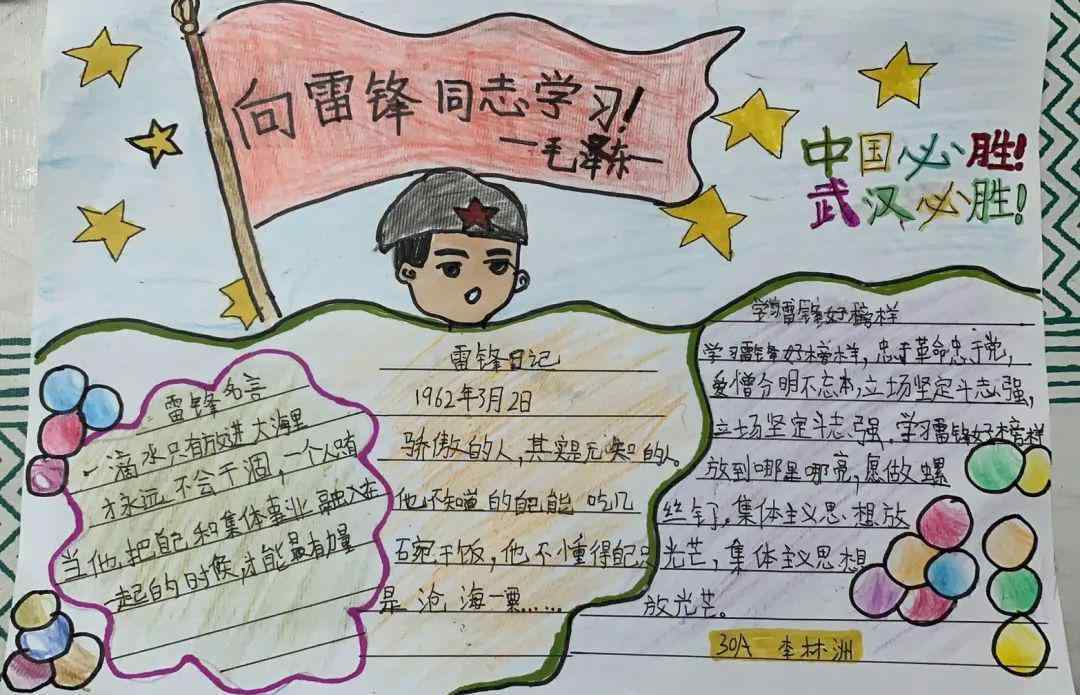 向雷锋同志学习!
一毛泽东一
中国必胜!
武汉必胜!
雷锋名言
一滴水只有放进大海里
才永远不会干涸,一个人只有
当他把自己和集体事业融入在
一起的时候,才能最有力量
雷锋日记
1962年3月2日
骄傲的人,其实是无知的人。
他不知道的自己能吃几
石宛干饭,他不懂得自己只
是沧海一粟……
学习雷锋好榜样
学习雷锋好榜样,忠于革命忠于党,
爱憎分明不忘本,立场坚定斗志强,
立场坚定斗志强,学习雷锋好榜样
放到哪里哪亮,愿做螺
丝钉,集体主义思想放
光芒,集体主义思想
放光芒。
30A 李林洲